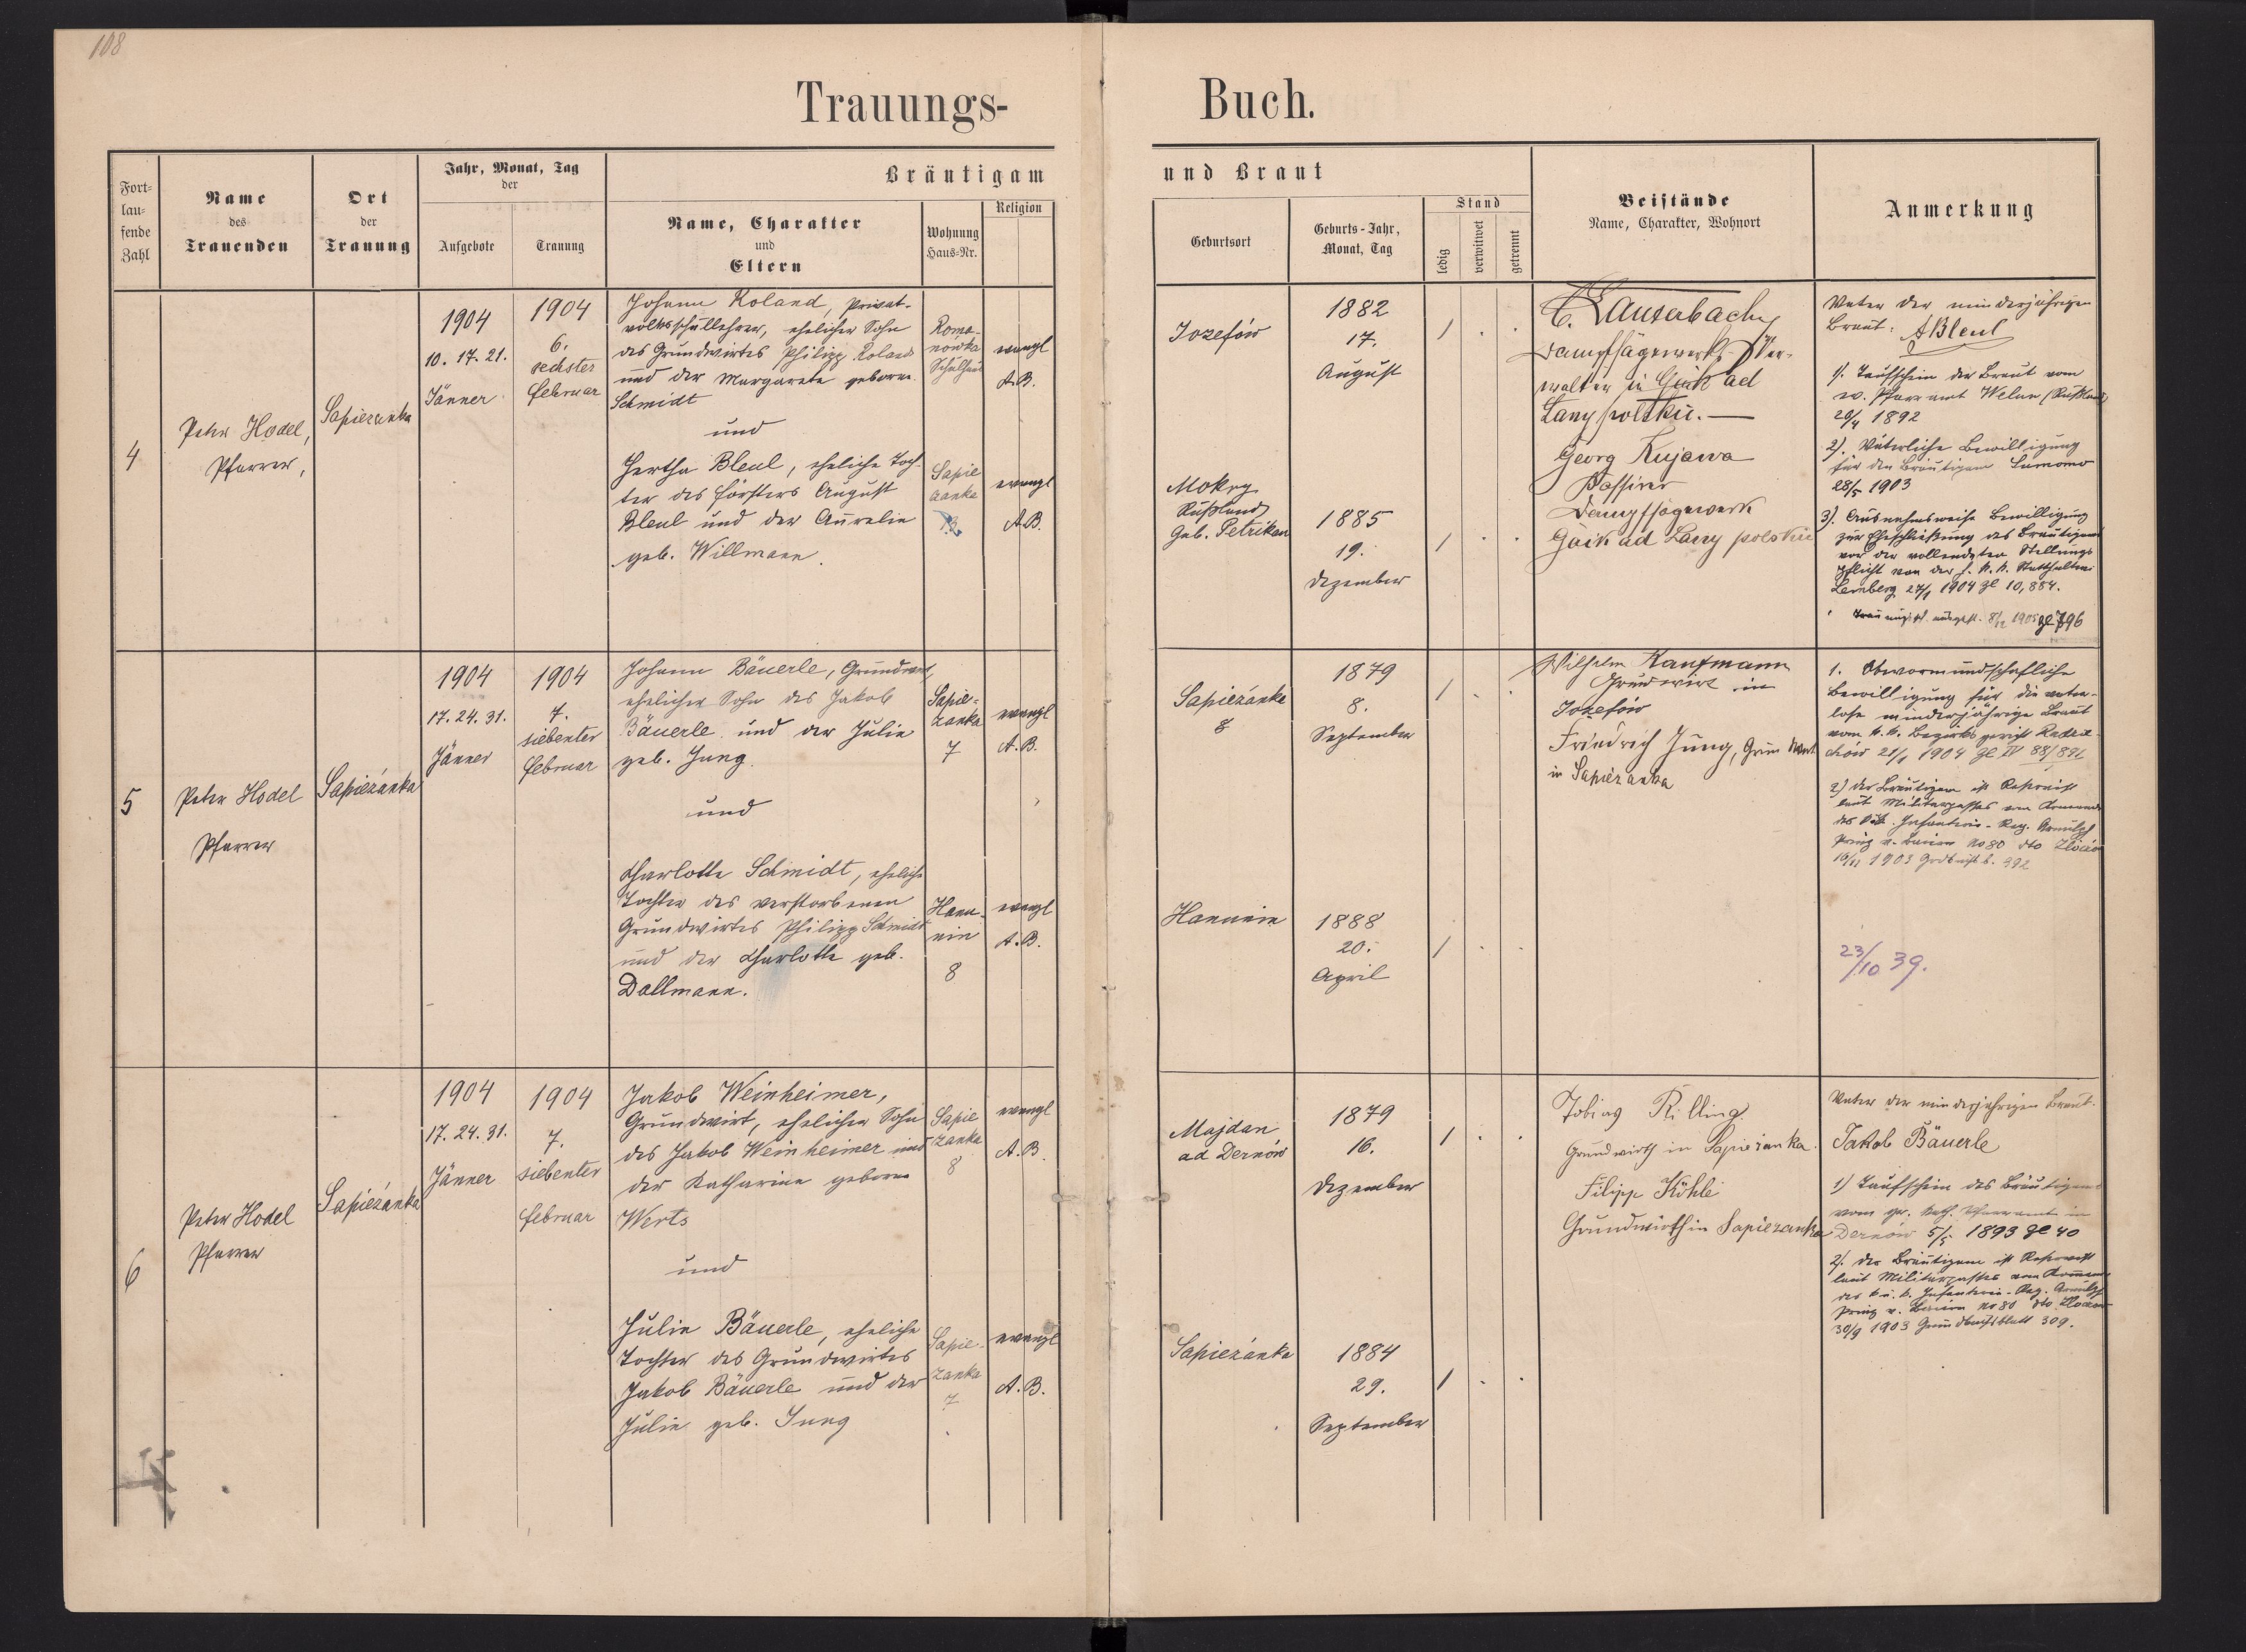 108
Trauungs-
Buch.
Fort-
lau-
fende
Zahl
Name
des
Trauenden
Ort
der
Trauung
Jahr, Monat, Tag
der
Aufgebote
Trauung
Bräutigam
Name, Charakter
und
Eltern
Wohnung
Haus-Nr.
Religion
und Braut
Geburtsort
Geburts-Jahr,
Monat, Tag
Stand
ledig
verwitwet
getrennt
Beistände
Name, Charakter, Wohnort
Anmerkung
4
Peter Hodel,
Pfarrer,
Sapiezanka
1904
10. 17. 21.
Jänner
1904
6.
sechster
Februar
Johann Roland, Privat-
volksschullehrer, ehelicher Sohn
des Grundwirtes Philipp Roland
und der Margarete geborene
Schmidt
Roma-
nówka
Schulhaus
evangl
A.B.
und
Hertha Bleul, eheliche Toch-
ter des Försters August
Bleul und der Aurelie
geb. Willmann.
Sapie
zanka
evangl
A.B.
Jozefów
1882
17.
August
/ . .
Mokry
Rußland
Gub. Petrikau
1885
19.
Dezember
/ . .
C. Lauterbach,
Dampfsägewerks-Ver-
walter in Gaik ad
Lany polskie.—
Georg Kujawa
Dampfsägewerk
Gaik ad Lany polskie
Vater der minderjährigen
Braut: ABleul
1). Taufschein der Braut vom
ev. Pfarramt Welun (Rußland)
20/4 1892
2). Väterliche Bewilligung
für den Bräutigam
28/5 1903
3). Ausnahmsweise Bewilligung
zur Eheschließung des Bräutigams
vor der vollendeten Stellungs
pflicht von der h. k. k. Statthalterei
Lemberg 27/1 1904 Zl 10,884.
5
Peter Hodel
Pfarrer
Sapiezanka
1904
17. 24. 31.
Jänner
1904
7.
siebenter
Februar
Johann Bäuerle, Grundwirt,
ehelicher Sohn des Jakob
Bäuerle und der Julie
geb. Jung.
Sapie-
zanka
7
evangl
A.B.
und
Charlotte Schmidt, eheliche
Tochter des verstorbenen
Grundwirtes Philipp Schmidt
und der Charlotte geb.
Dallmann.
Hanu-
nin
8
evangl
A.B.
Sapiezanka
8
1879
8.
September
/ . .
Hanunin
1888
20.
April
/ . .
Wilhelm Kaufmann
Grundwirt in
Jozefów
Friedrich Jung, Grundwirt
in Sapiezanka
1. Obervormundschaftliche
Bewilligung für die vater-
lose minderjährige Braut
vom k. k. Bezirksgericht Radzie-
chów 21/1 1904
2) der Bräutigam ist Reservist
laut Militärpasses vom Kommando
des k. u. k. Infanterie-Reg. Arnulf
Prinz v. Baiern No 80 dto Zloczow
1903 992
23/10 39.
6
Peter Hodel
Pfarrer
Sapiezanka
1904
17. 24. 31.
Jänner
1904
7.
siebenter
Februar
Jakob Weinheimer,
Grundwirt, ehelicher Sohn
des Jakob Weinheimer und
der Katharine geborene
Werts
Sapie
zanka
8
evangl
A.B.
und
Julie Bäuerle, eheliche
Tochter des Grundwirtes
Jakob Bäuerle und der
Julie geb. Jung
Sapie-
zanka
7
evangl
A.B.
Majdan
ad Dernów
1879
16.
Dezember
/ . .
Sapiezanka
1884
29.
September
/ . .
Tobias Rilling
Grundwirth in Sapiezanka.
Filipp Köhle
Grundwirth in Sapiezanka
Vater der minderjährigen Braut.
Jakob Bäuerle
1) Taufschein des Bräutigams
vom gr. kath. Pfarramt in
Dernów 5/5 1893 Zl 40
2). der Bräutigam ist Reservist
laut Militärpasses vom Kommando
des k. u. k. Infanterie-Reg. Arnulf
Prinz v. Baiern No 80 dto Zloczow
30/9 1903 Grundbuchsblatt 309.